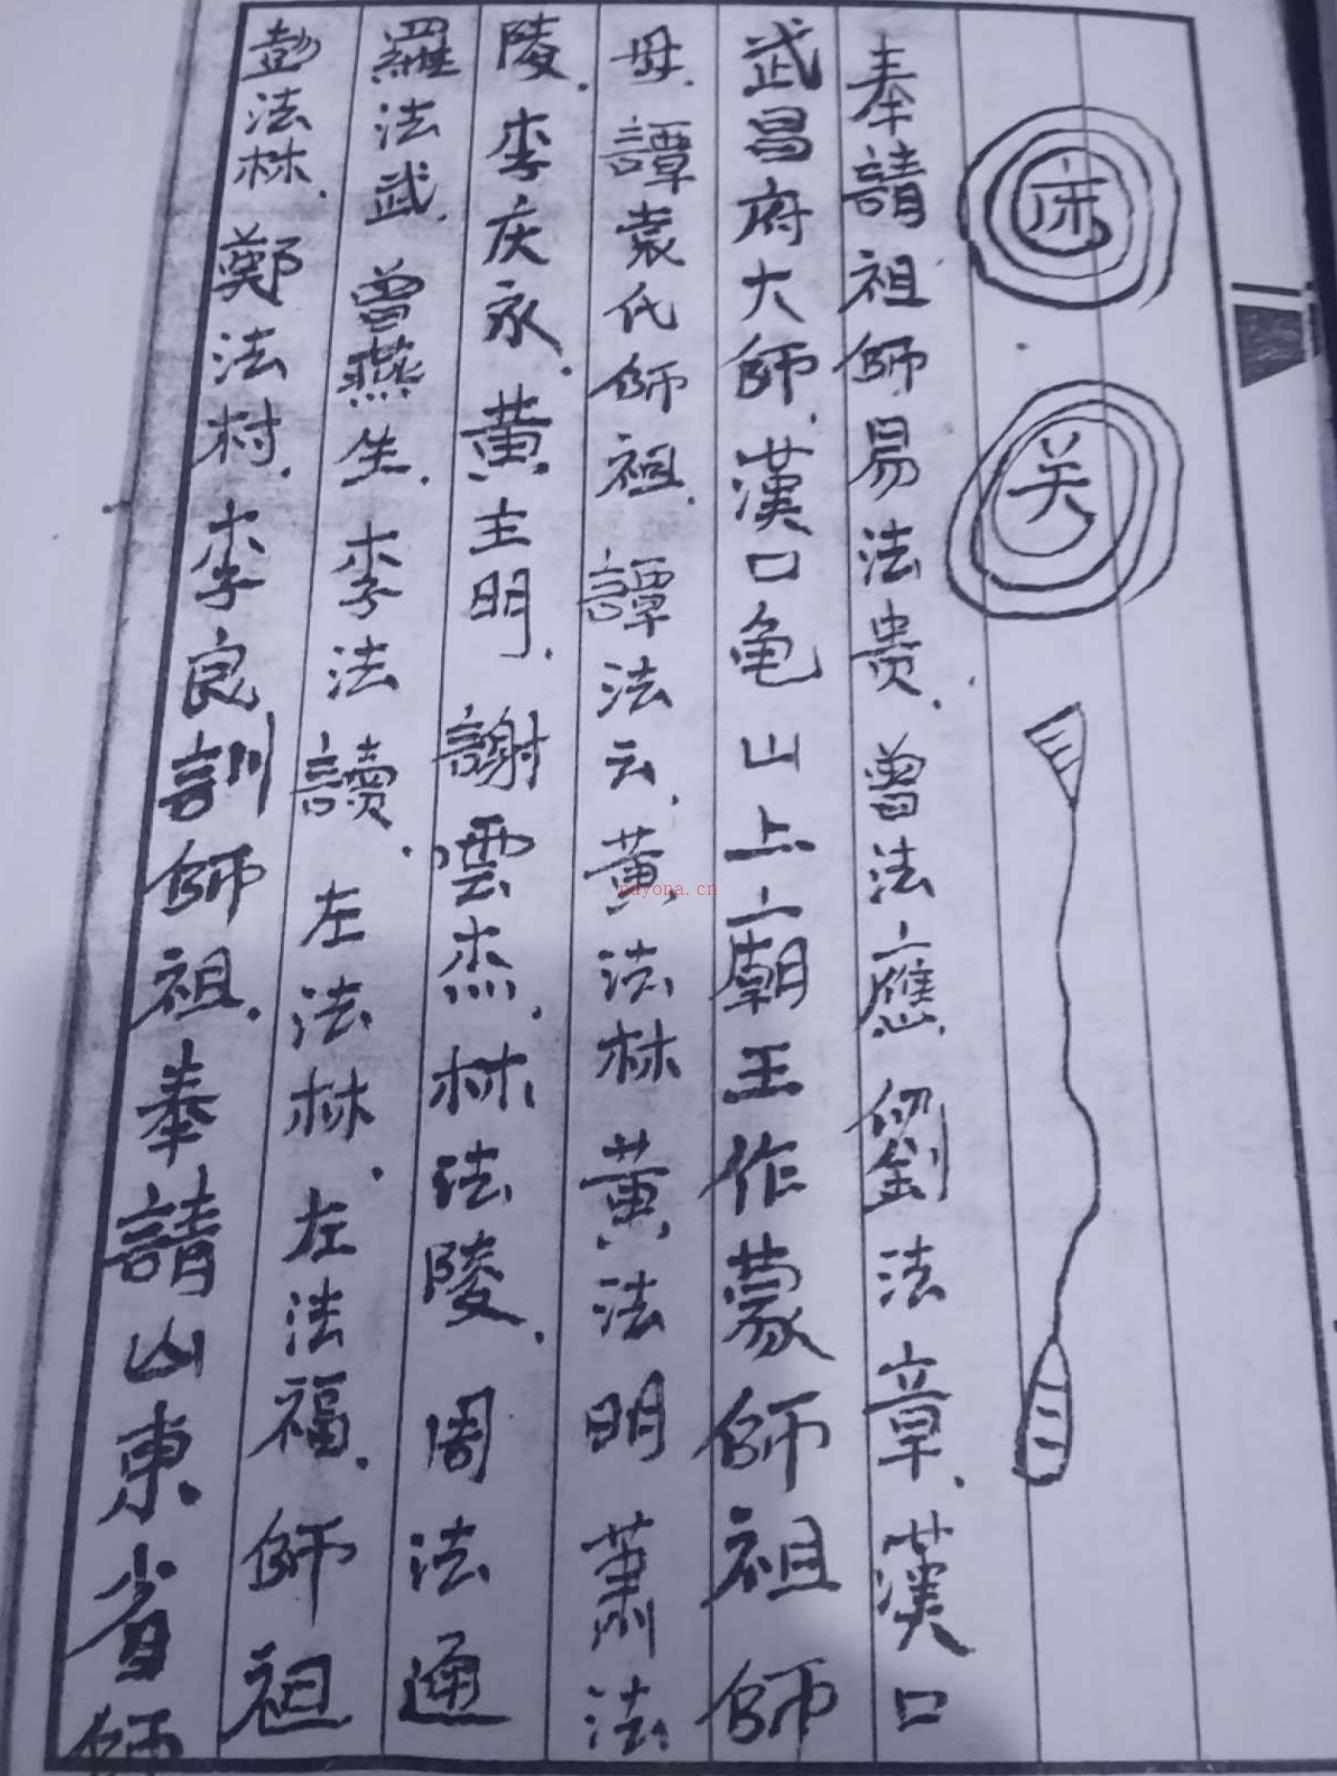 床
关
奉請祖師易法贵.曾法應.劉法章.漢口
武昌府大師.漢口龟山上廟王作蒙師祖師
母.譚袁氏師祖.譚法云.黄法林黄法明蕭法
陵.李庆永.黄主明.謝雲杰.林法陵.周法通
羅法武.曾燕生.李法讀.左法林.左法福.師祖
彭法林.鄭法村.李良訓師祖.奉請山東省師
nayona.cn